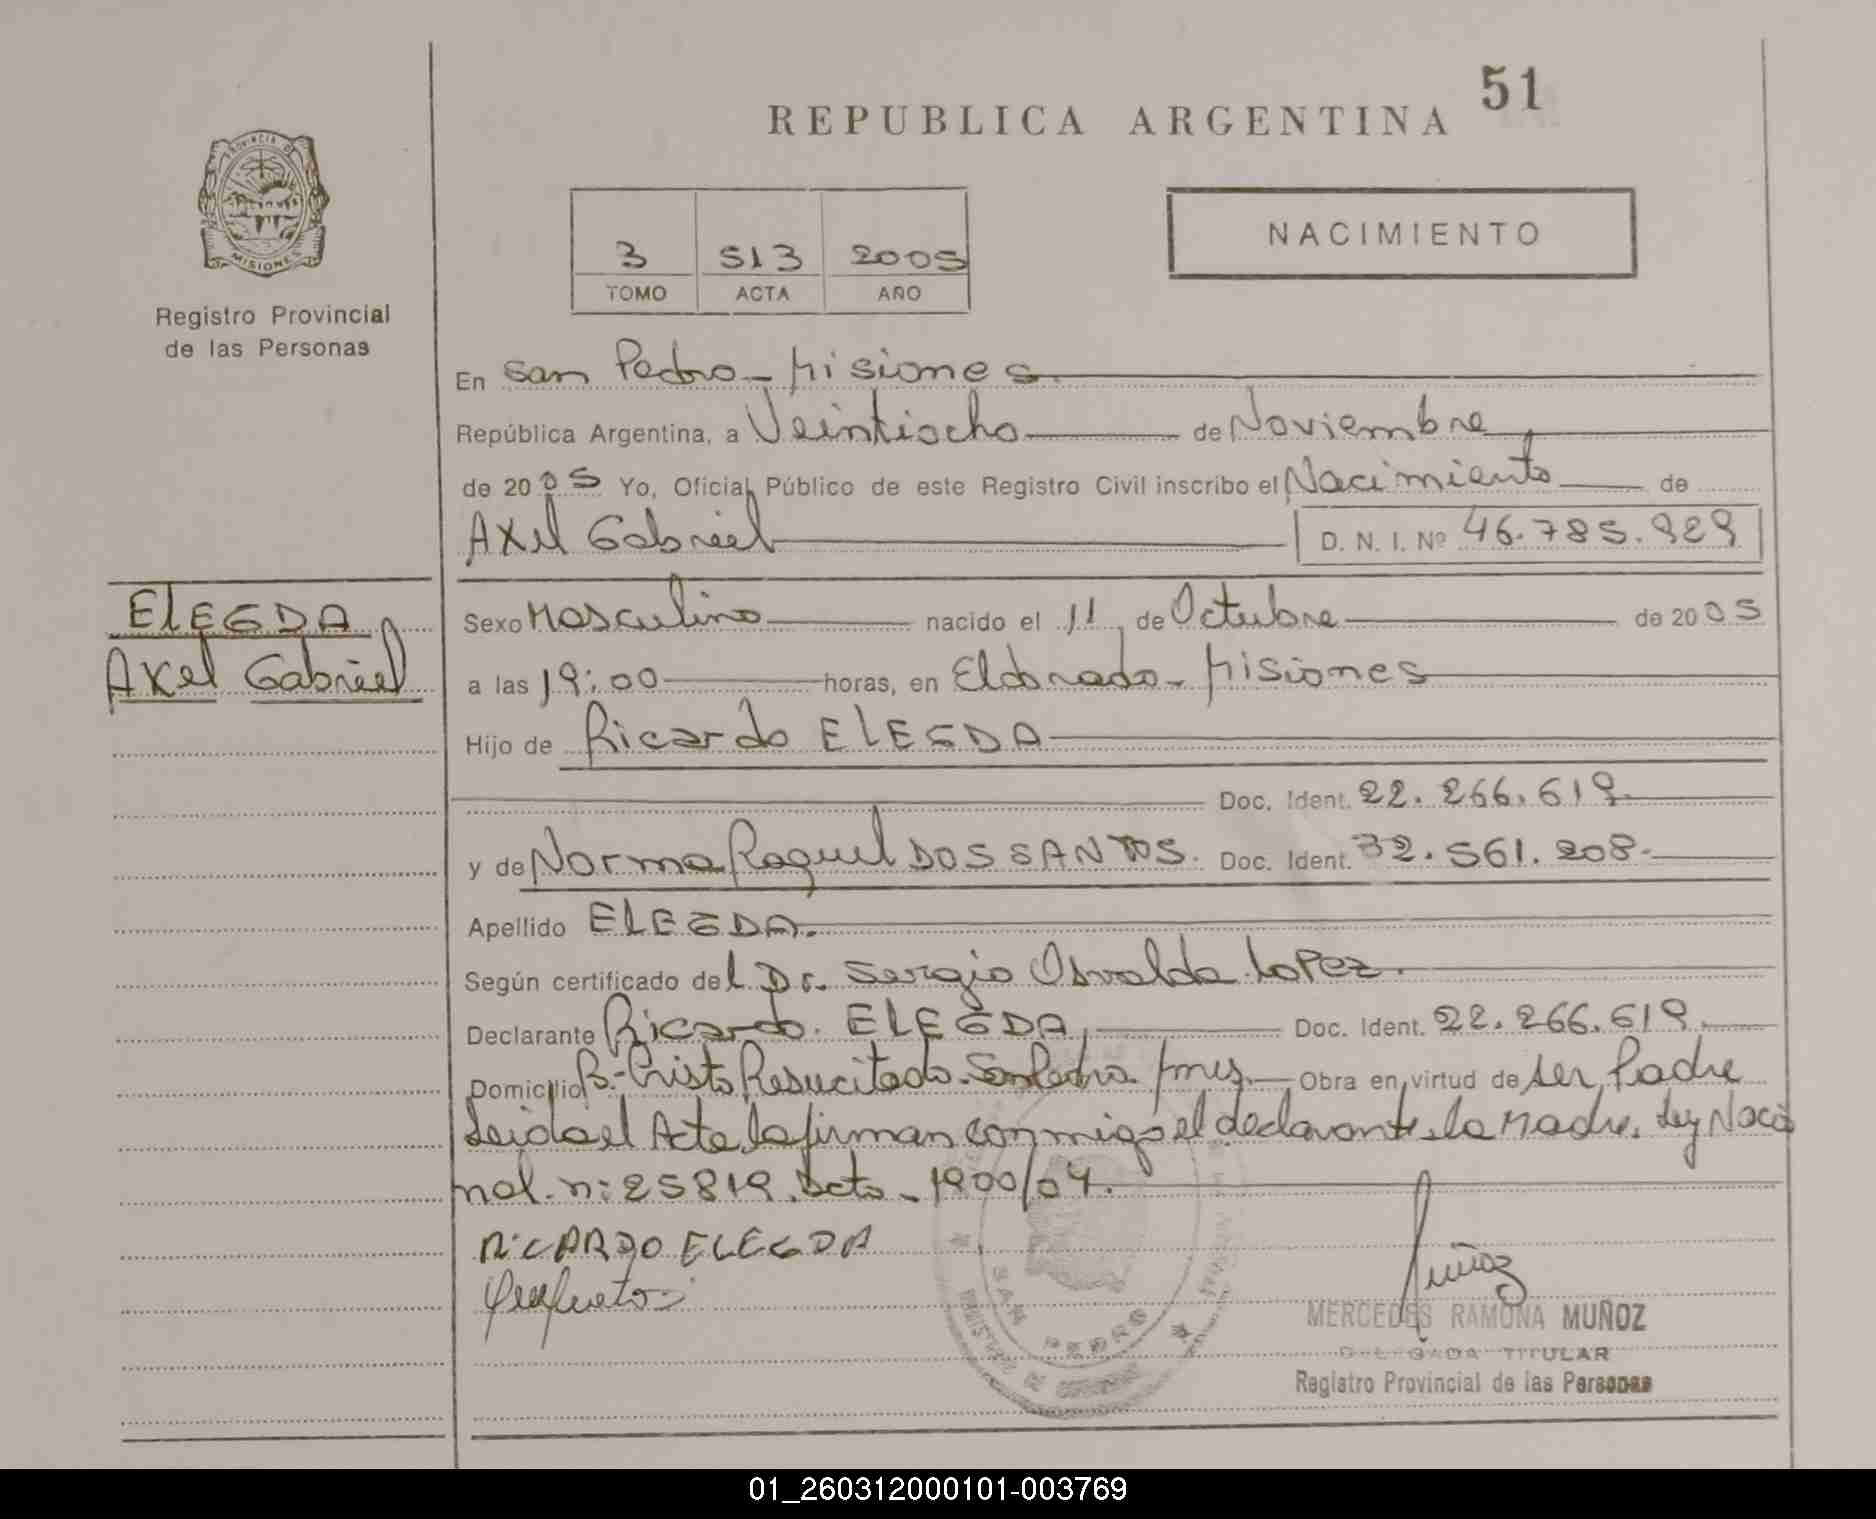 51
REPUBLICA ARGENTINA
PROVINCIA DE
MISIONES
Registro Provincial
de las Personas
3 513 2005
TOMO ACTA AÑO
NACIMIENTO
En San Pedro - Misiones.
República Argentina, a Veintiocho de Noviembre
de 2005 Yo, Oficial Público de este Registro Civil inscribo el Nacimiento de
Axel Gabriel D. N. I. Nº 46.785.929
ELEGDA
Axel Gabriel
Sexo Masculino nacido el 11 de Octubre de 2005
a las 19:00 horas, en Eldorado - Misiones
Hijo de Ricardo ELEGDA
Doc. Ident. 22.266.619.
y de Norma Raquel DOS SANTOS. Doc. Ident. 32.561.208.
Apellido ELEGDA.
Según certificado del Dr. Sergio Osvaldo Lopez.
Declarante Ricardo. ELEGDA, Doc. Ident. 22.266.619.
Domicilio B.- Cristo Resucitado. San Pedro. Obra en virtud de ser Padre
Leida el Acta, la firman conmigo el declarante, la Madre. Ley Nacio
nal. n: 25819. Dcto - 1900/04.
RICARDO ELEGDA
Muñoz
MERCEDES RAMONA MUÑOZ
DELEGADA TITULAR
Registro Provincial de las Personas
SAN PEDRO
01_260312000101-003769